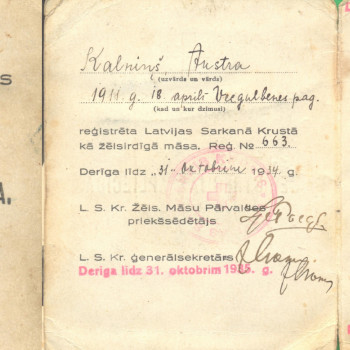 Kalniņš Austra
(uzvārds un vārds)
1911. g. 18. aprilī Vecgulbenes pag.
(kad un kur dzimusi)
reģistrēta Latvijas Sarkanā Krustā
kā žēlsirdīgā māsa. Reģ. № 663.
Derīga līdz „31” oktobrim 1934. g.
L. S. Kr. Žēls. Māsu Pārvaldes
priekšsēdētājs
L. S. Kr. ģenerālsekretārs
Derīga līdz 31. oktobrim 1935. g.